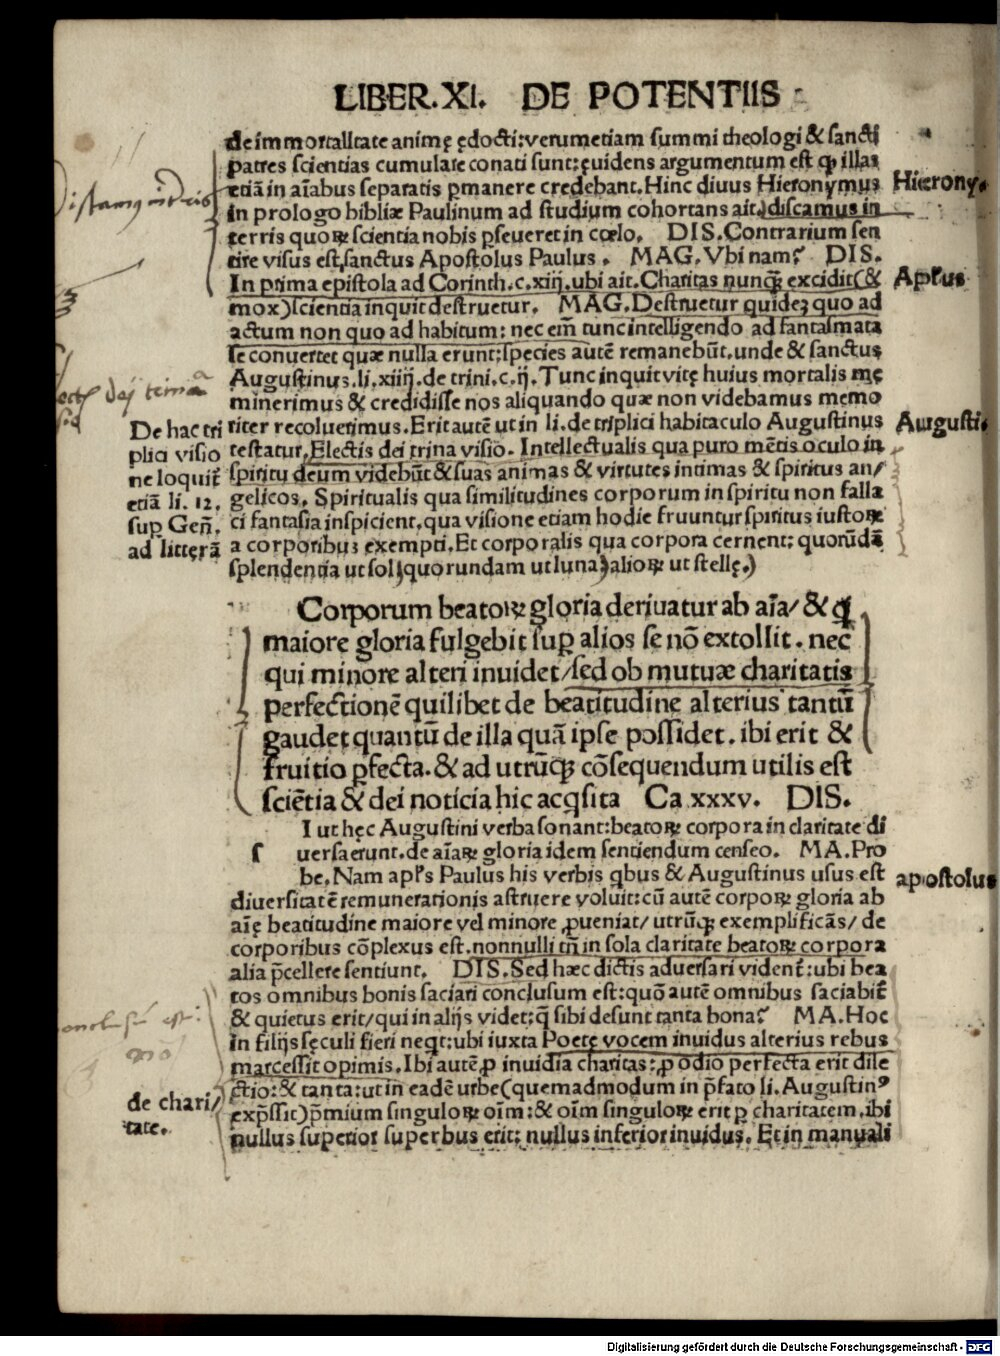 LIBER.XI. DE POTENTIIS
de immortalitate animę ędocti:verumetiam summi theologi & sancti
patres scientias cumulate conati sunt:ęuidens argumentum est ꝙ illas
etiã in aĩabus separatis ꝑmanere credebant.Hinc diuus Hieronymus
Hierony.
in prologo bibliæ Paulinum ad studium cohortans ait.)discamus in
terris quoꝝ scientia nobis ꝑseueret in cœlo. DIS.Contrarium sen
tire visus est,sanctus Apostolus Paulus. MAG.Vbi nam? DIS.
In prima epistola ad Corinth.c.xiij.ubi ait.Charitas nunꝗ̃ excidit(&
Apl̃us
mox)scientia inquit destruetur. MAG.Destruetur quideȝ quo ad
actum non quo ad habitum: nec em̃ tunc intelligendo ad fantasmata
se conuertet quæ nulla erunt:species autẽ remanebũt.unde & sanctus
Augustinus.li.xiiij.de trini.c.ij.Tunc inquit vitę huius mortalis mę
minerimus & credidisse nos aliquando quæ non videbamus memo
riter recoluerimus.Erit autẽ ut in li.de triplici habitaculo Augustinus
Augusti.
testatur,Electis dei trina visio. Intellectualis qua puro mẽtis oculo in
spiritu deum videbũt & suas animas & virtutes intimas & spiritus an/
gelicos. Spiritualis qua similitudines corporum in spiritu non falla
ci fantasia inspicient,qua visione etiam hodie fruuntur spiritus iustoꝝ
a corporibus exempti.Et corporalis qua corpora cernent: quorũdã
splendentia ut sol)quorundam ut luna)alioꝝ ut stellę.)
De hac tri
plici visio
ne loquit̃
etiã li. 12.
sup Geñ.
ad litterã
Corporum beatoꝝ gloria deriuatur ab aĩa/ & q
maiore gloria fulgebit sup alios se nõ extollit. nec
qui minore alteri inuidet/sed ob mutuæ charitatis
perfectionẽ quilibet de beatitudine alterius tantũ
gaudet quantũ de illa quã ipse possidet. ibi erit &
fruitio ꝑfecta. & ad utrũqꝫ cõsequendum utilis est
sciẽtia & dei noticia hic acq̃sita Ca xxxv. DIS.
s
I ut hęc Augustini verba sonant:beatoꝝ corpora in claritate di
uersa erunt.de aĩaꝝ gloria idem sentiendum censeo. MA.Pro
be.Nam apl̃s Paulus his verbis qbus & Augustinus usus est
apostolus
diuersitatẽ remunerationis astruere voluit:cũ autẽ corpoꝝ gloria ab
aĩę beatitudine maiore vel minore ꝓueniat/ utrũqꝫ exemplificãs/ de
corporibus cõplexus est.nonnulli tñ in sola claritate beatoꝝ corpora
alia p̃cellere sentiunt. DIS.Sed hæc dictis aduersari vident̃:ubi bea
tos omnibus bonis saciari conclusum est:quõ autẽ omnibus saciabit̃
& quietus erit/qui in alijs videt:q̃ sibi desunt tanta bona? MA.Hoc
in filijs sęculi fieri neqt:ubi iuxta Poetę vocem inuidus alterius rebus
marcessit opimis.Ibi autẽ,ꝓ inuidia charitas:,ꝓ odio perfecta erit dile
ctio:& tanta:ut in eadẽ urbe(quemadmodum in p̃fato li.Augustinꝰ
exp̃ssit)p̃mium singuloꝝ oĩm:& oĩm singuloꝝ erit ꝑ charitatem.ibi
nullus superior superbus erit: nullus inferior inuidus. Et in manuali
de chari/
tate.
Digitalisierung gefördert durch die Deutsche Forschungsgemeinschaft - DFG